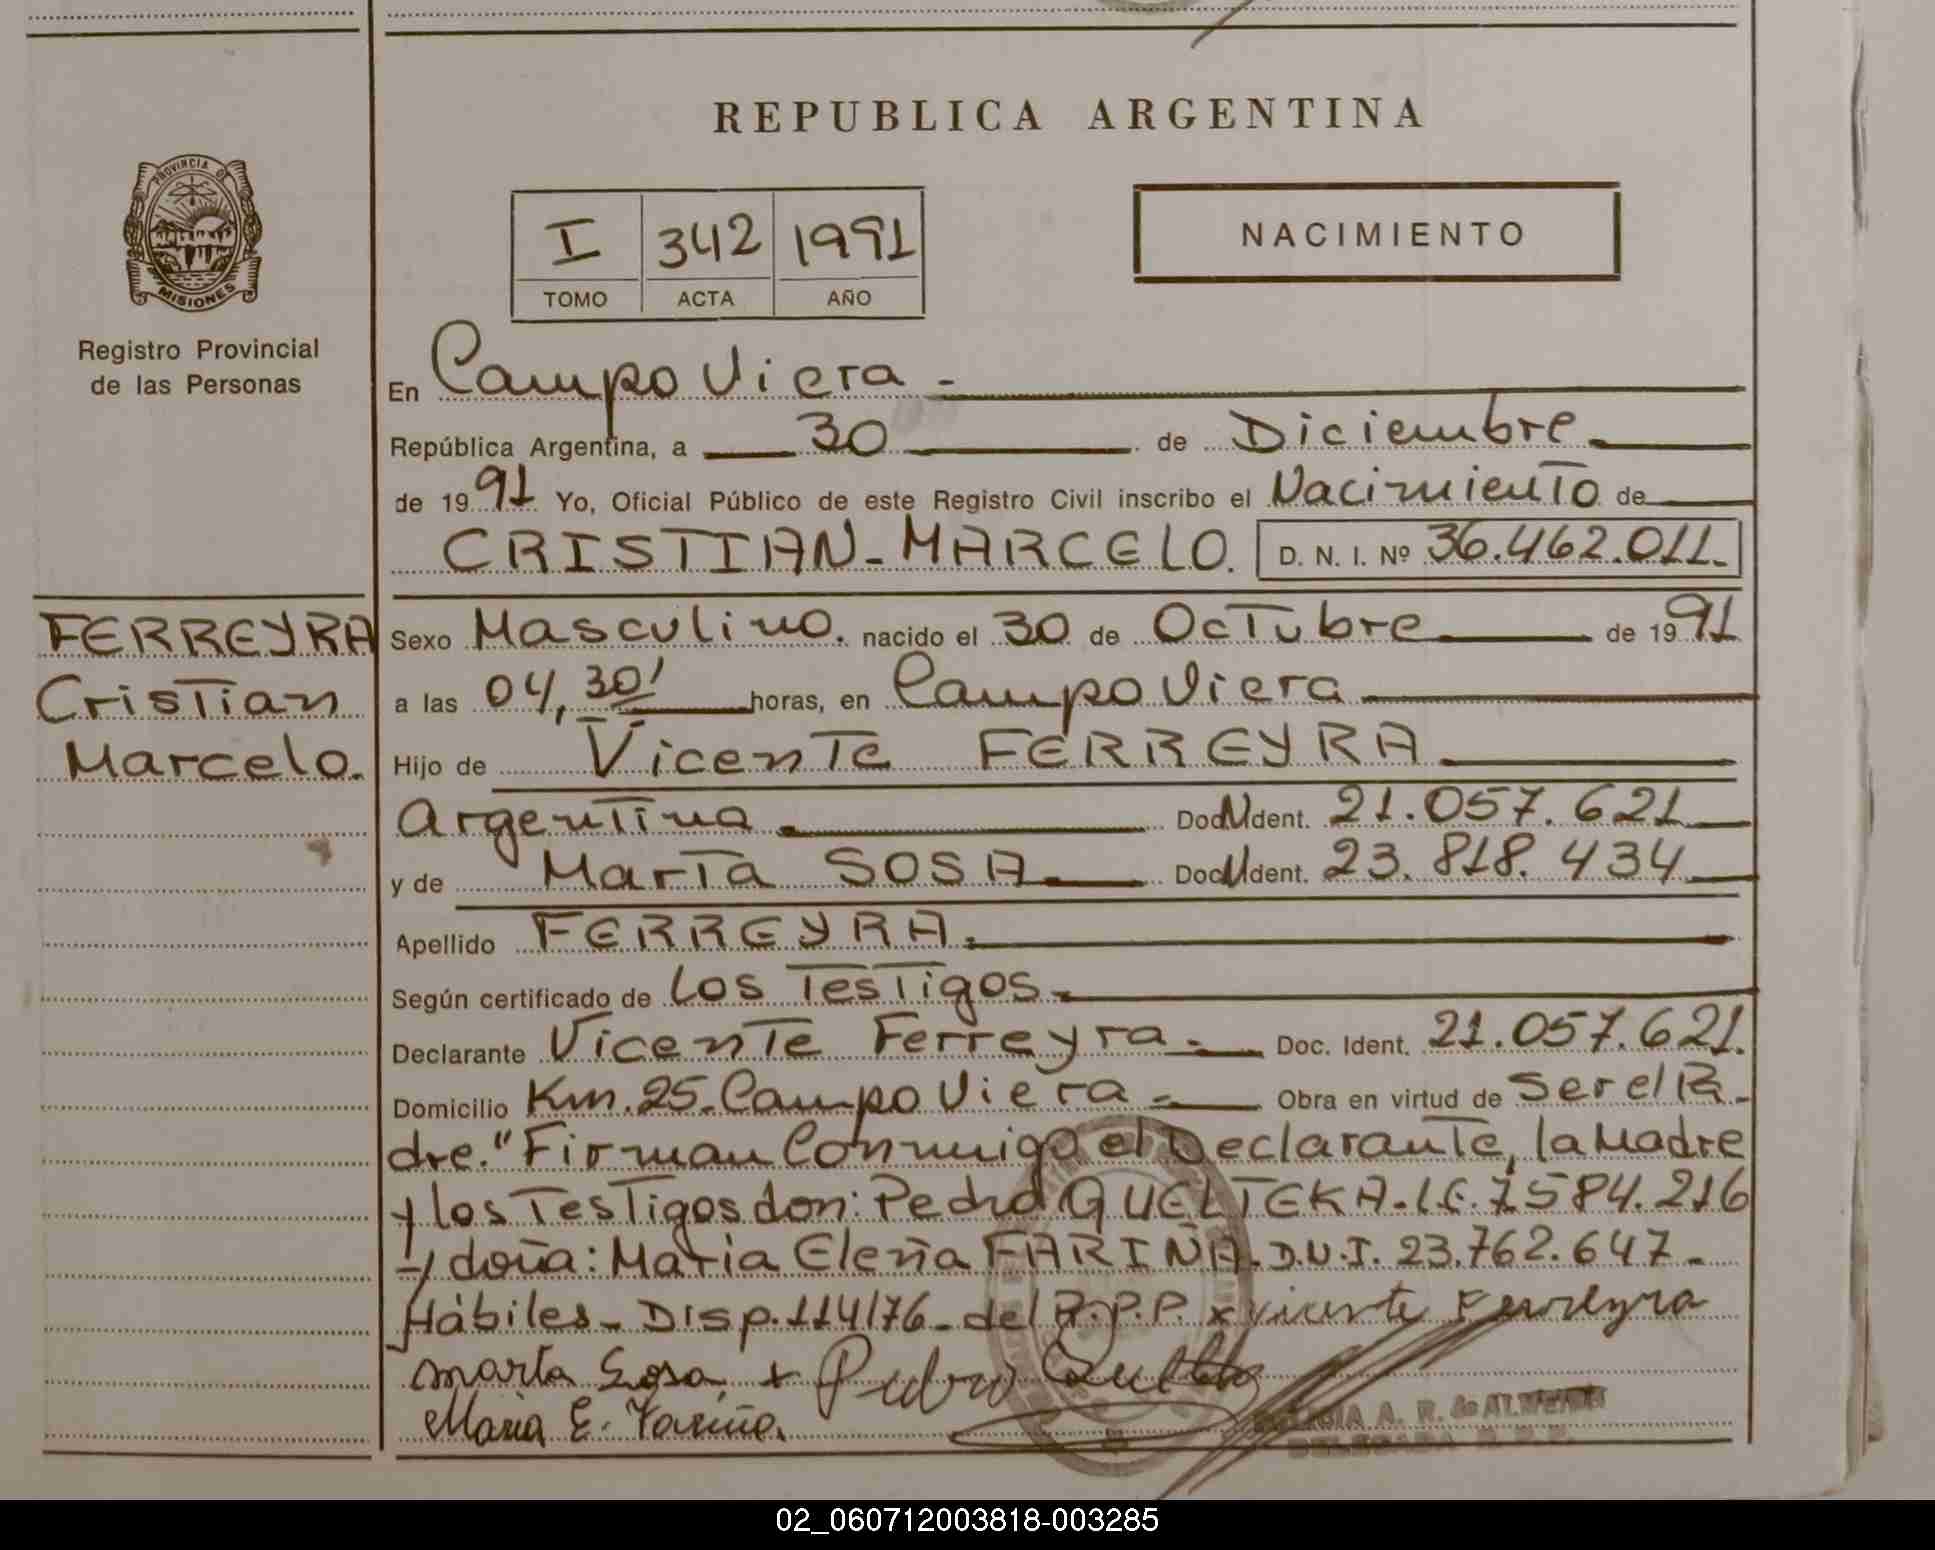 REPUBLICA ARGENTINA
PROVINCIA DE
MISIONES
Registro Provincial
de las Personas
I 342 1991
TOMO ACTA AÑO
NACIMIENTO
En Campo Viera -
República Argentina, a 30 de Diciembre
de 1991 Yo, Oficial Público de este Registro Civil inscribo el Nacimiento de
CRISTIAN-MARCELO. D. N. I. Nº 36.462.011.-
FERREYRA
Cristian
Marcelo.
Sexo Masculino. nacido el 30 de Octubre de 1991
a las 04,30' horas, en Campo Viera
Hijo de Vicente FERREYRA
Argentina Doc. Ident. 21.057.621
y de Marta SOSA Doc. Ident. 23.818.434
Apellido FERREYRA.
Según certificado de Los Testigos-
Declarante Vicente Ferreyra.- Doc. Ident. 21.057.621.
Domicilio Km.25.Campo Viera.- Obra en virtud de Ser el Pa-
dre."Firman Conmigo el Declarante, la Madre
y los Testigos don: Pedro QUELTEKA-L.E.7.584.216
y doña: Maria Elena FARIÑA.D.N.I. 23.762.647-
Hábiles- Disp.114/76-del R.P.P. x vicente Ferreyra
marta Sosa + Pedro
Maria E. Fariña.
A. R. de
02_060712003818-003285